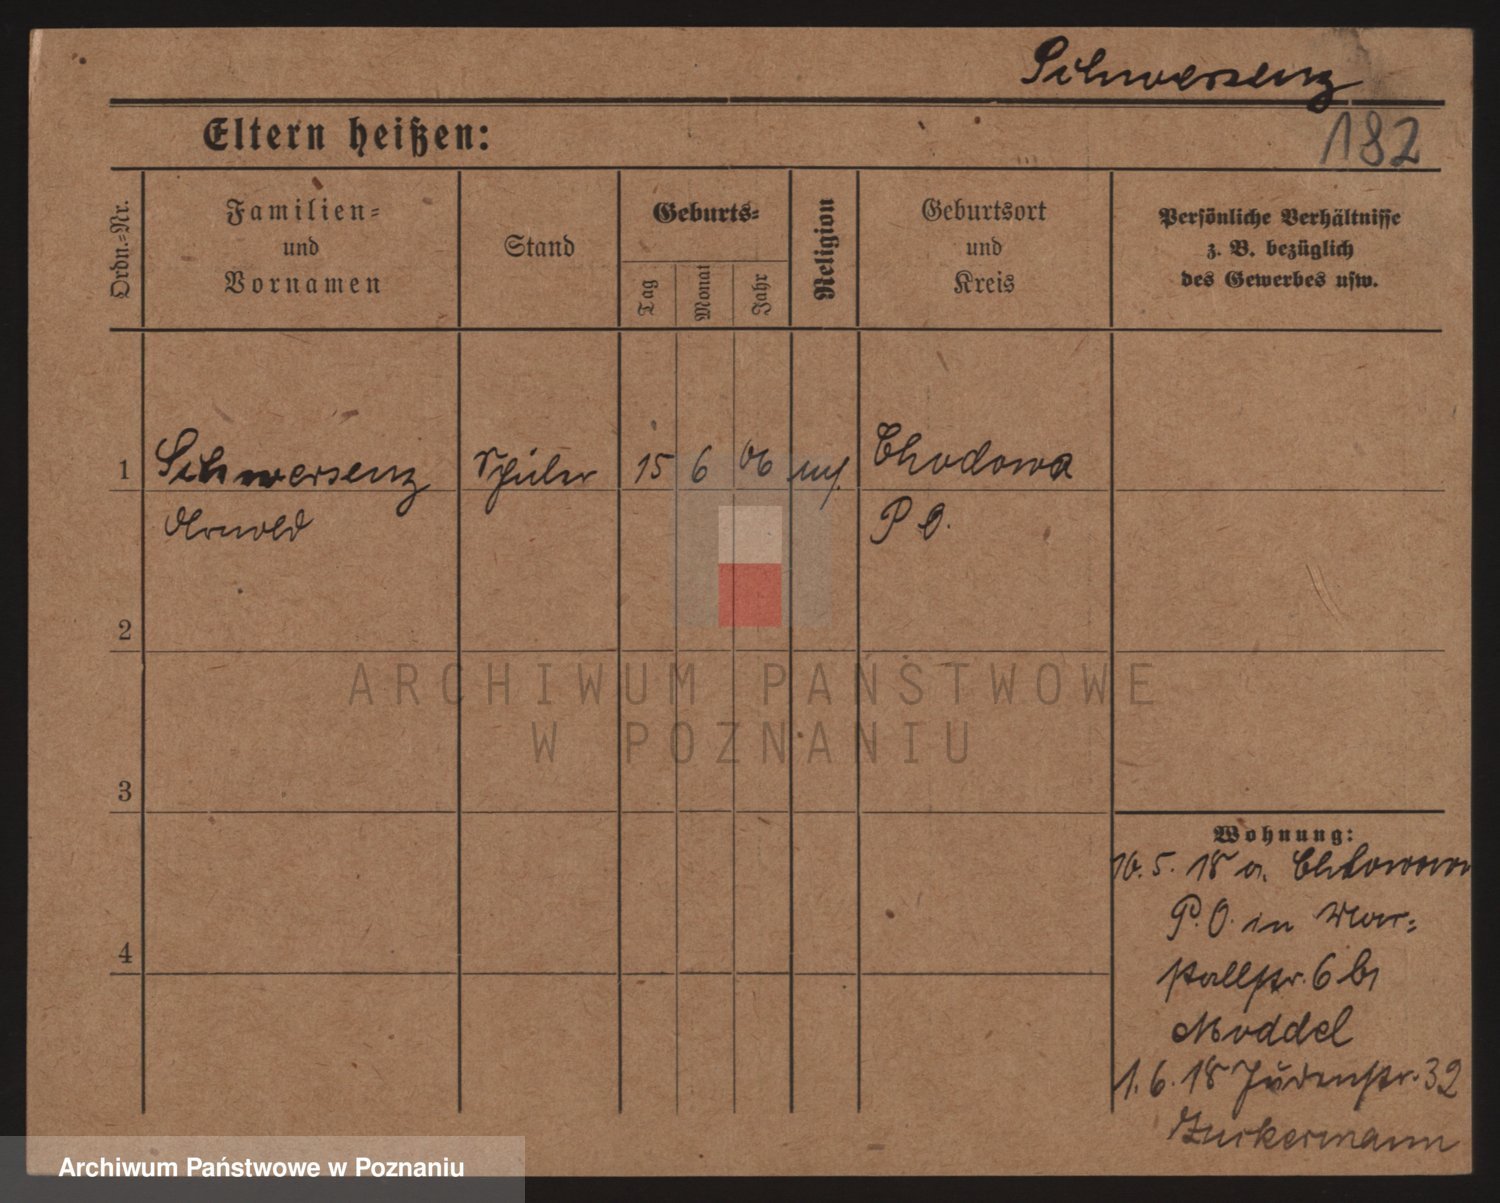 Schwersenz
Eltern heißen:
182
Ordn.-Nr.
Familien-
und
Vornamen
Stand
Geburts-
Tag
Monat
Jahr
Religion
Geburtsort
und
Kreis
Persönliche Verhältnisse
z. B. bezüglich
des Gewerbes usw.
1 Schwersenz Schüler 15 6 06 Chodowa
Arnold P O.
2
3
4
Wohnung:
10. 5. 18 a.
P. O. in Mar-
stallstr. 6 b/
Moddel
1. 6. 18 Judenstr. 32
Zuckermann
ARCHIWUM PAŃSTWOWE
W POZNANIU
Archiwum Państwowe w Poznaniu